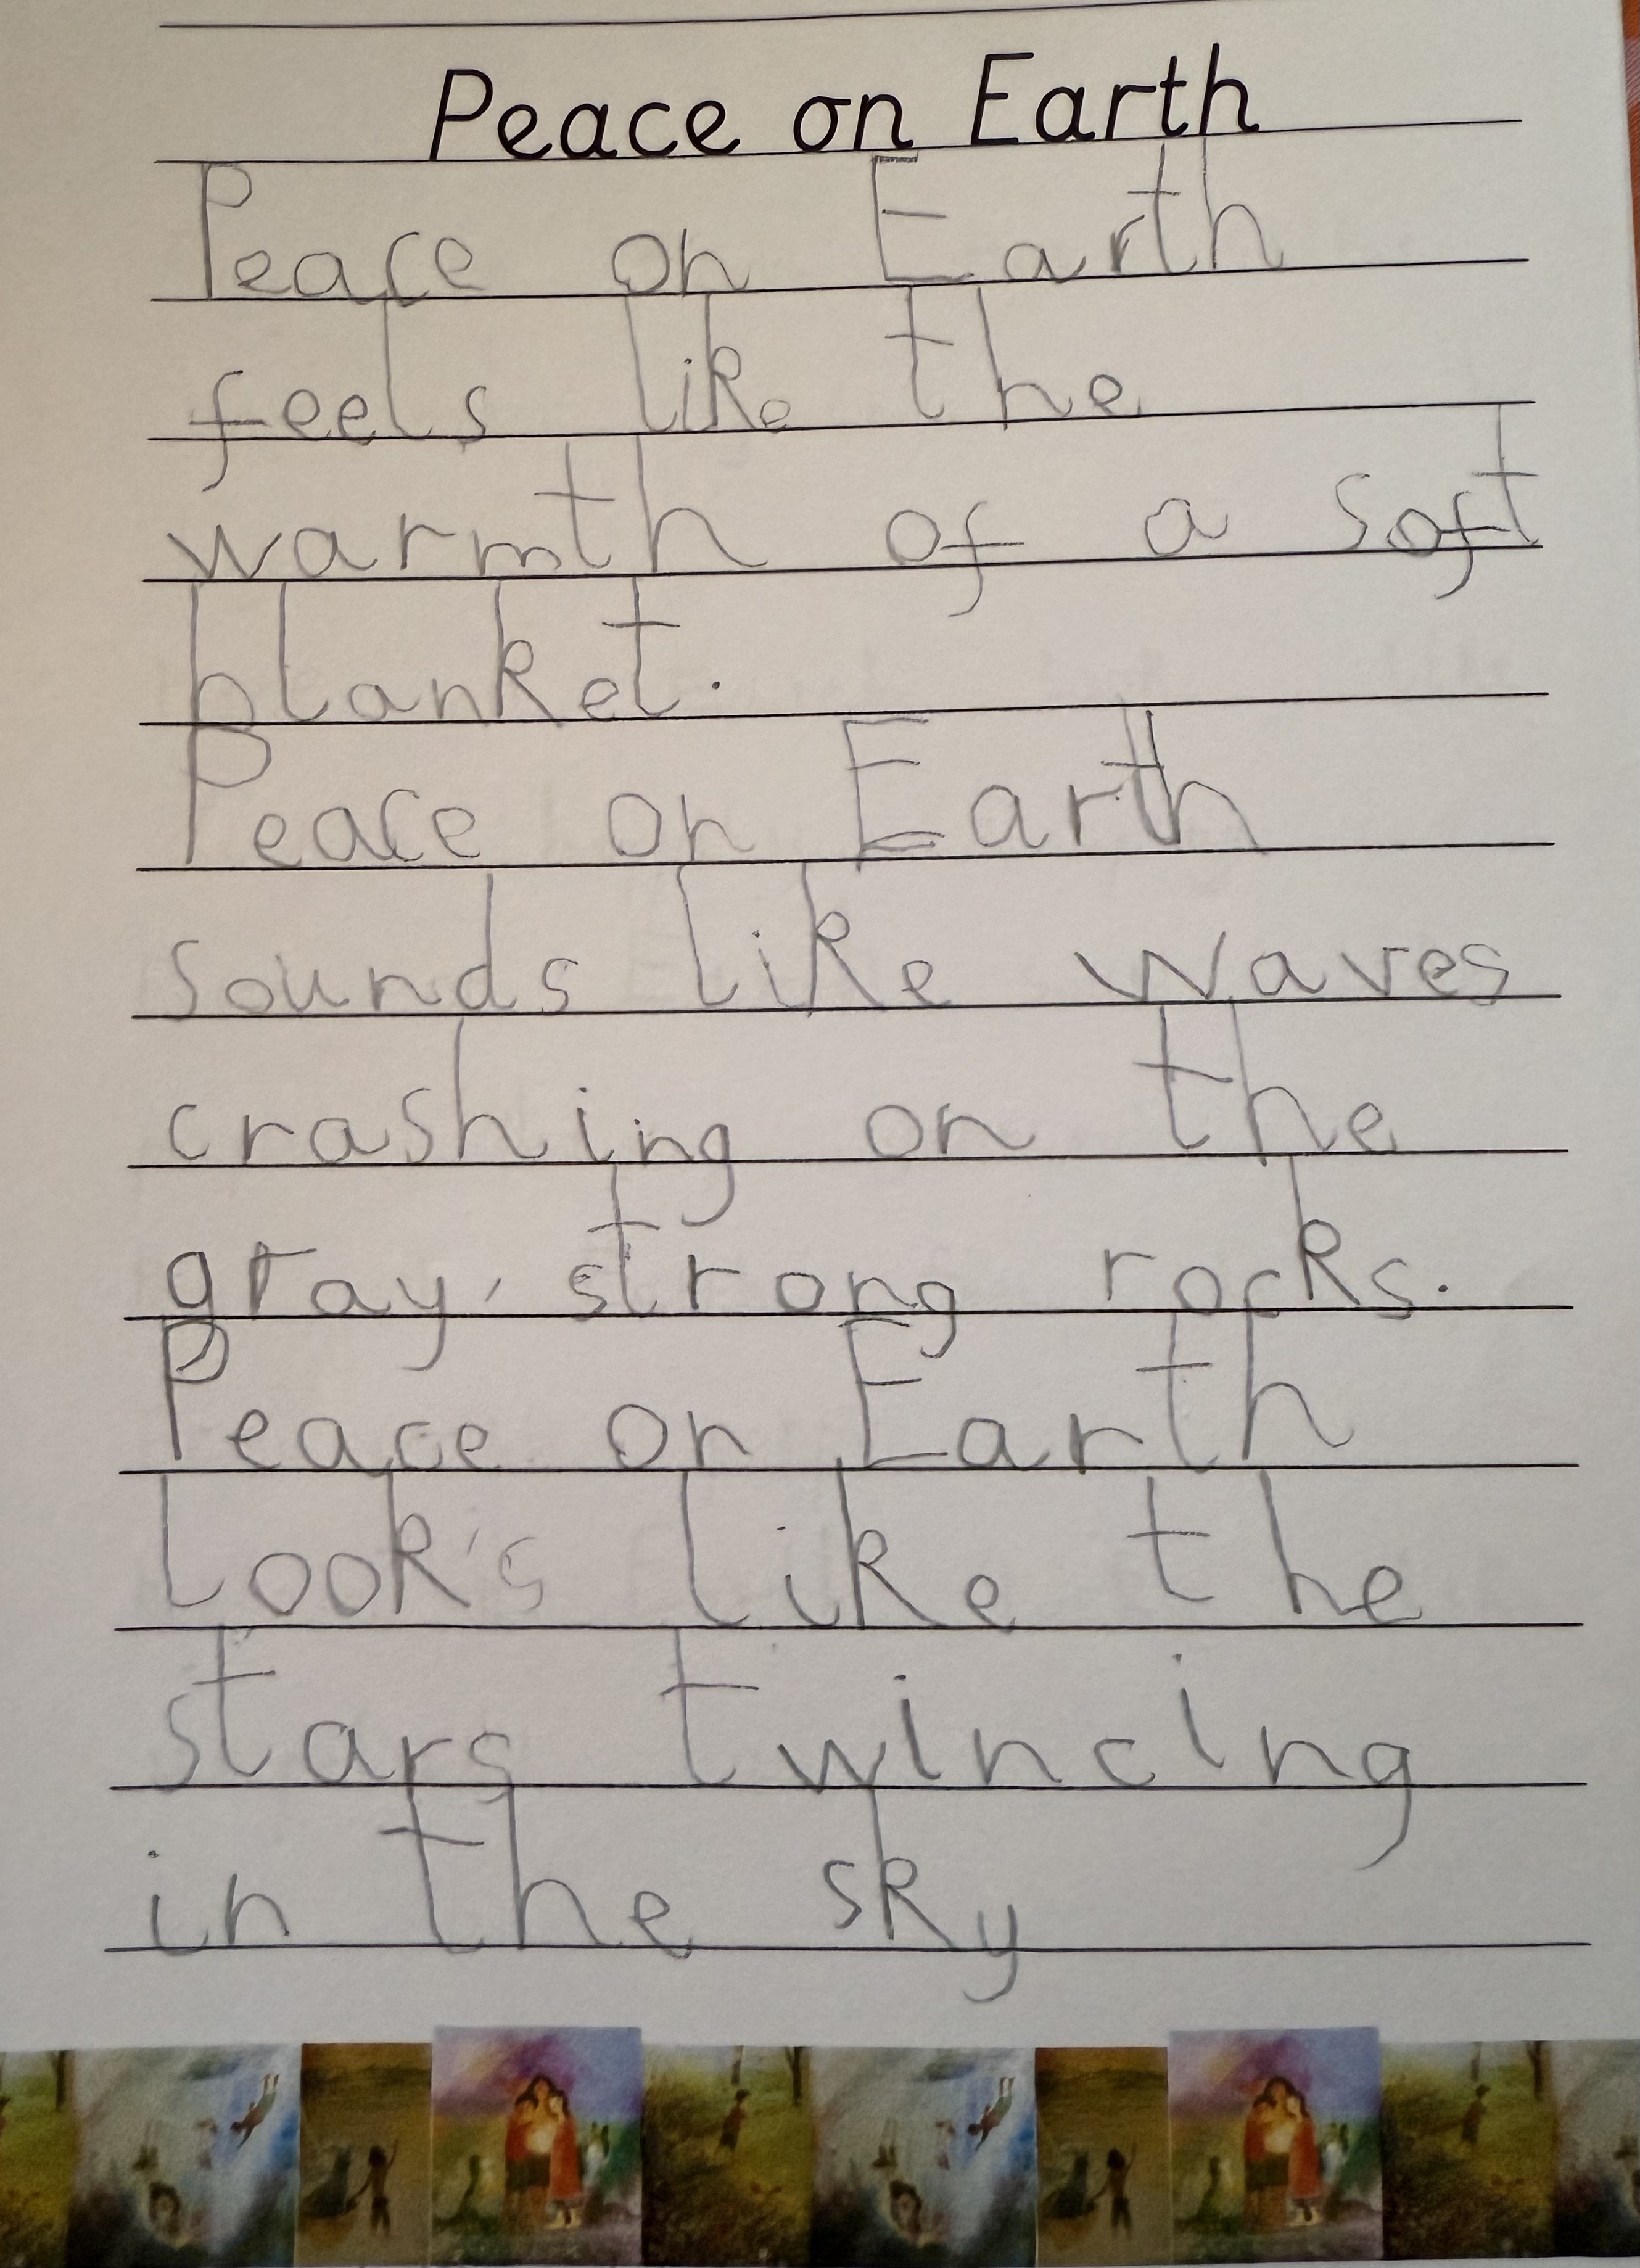 Peace on Earth
Peace on Earth
feels like the
warmth of a soft
blanket.
Peace on Earth
sounds like waves
crashing on the
gray, strong rocks.
Peace on Earth
look's like the
stars twincing
in the sky